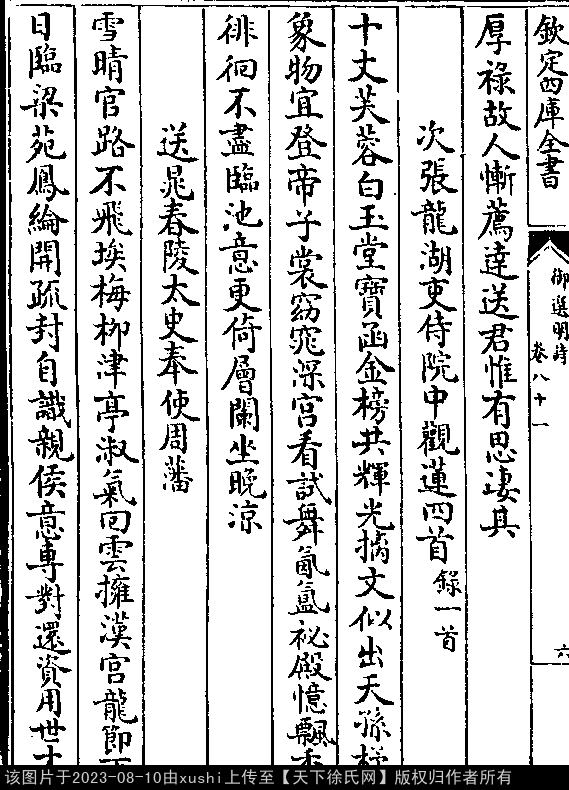 欽定四庫全書
御選明詩
卷八十一
六
厚祿故人慚薦達送君惟有思凄其
次張龍湖吏侍院中觀蓮四首錄一首
十丈芙蓉白玉堂寶函金榜共輝光摛文似出天孫
象物宜登帝子裳窈窕深宮看試舞氤氳祕殿憶飄
徘徊不盡臨池意更倚層闌坐晚涼
送晁春陵太史奉使周藩
雪晴官路不飛埃梅柳津亭淑氣回雲擁漢宮龍節
日臨梁苑鳳綸開疏封自識親侯意專對還資用世
该图片于2023-08-10由xushi上传至【天下徐氏网】版权归作者所有